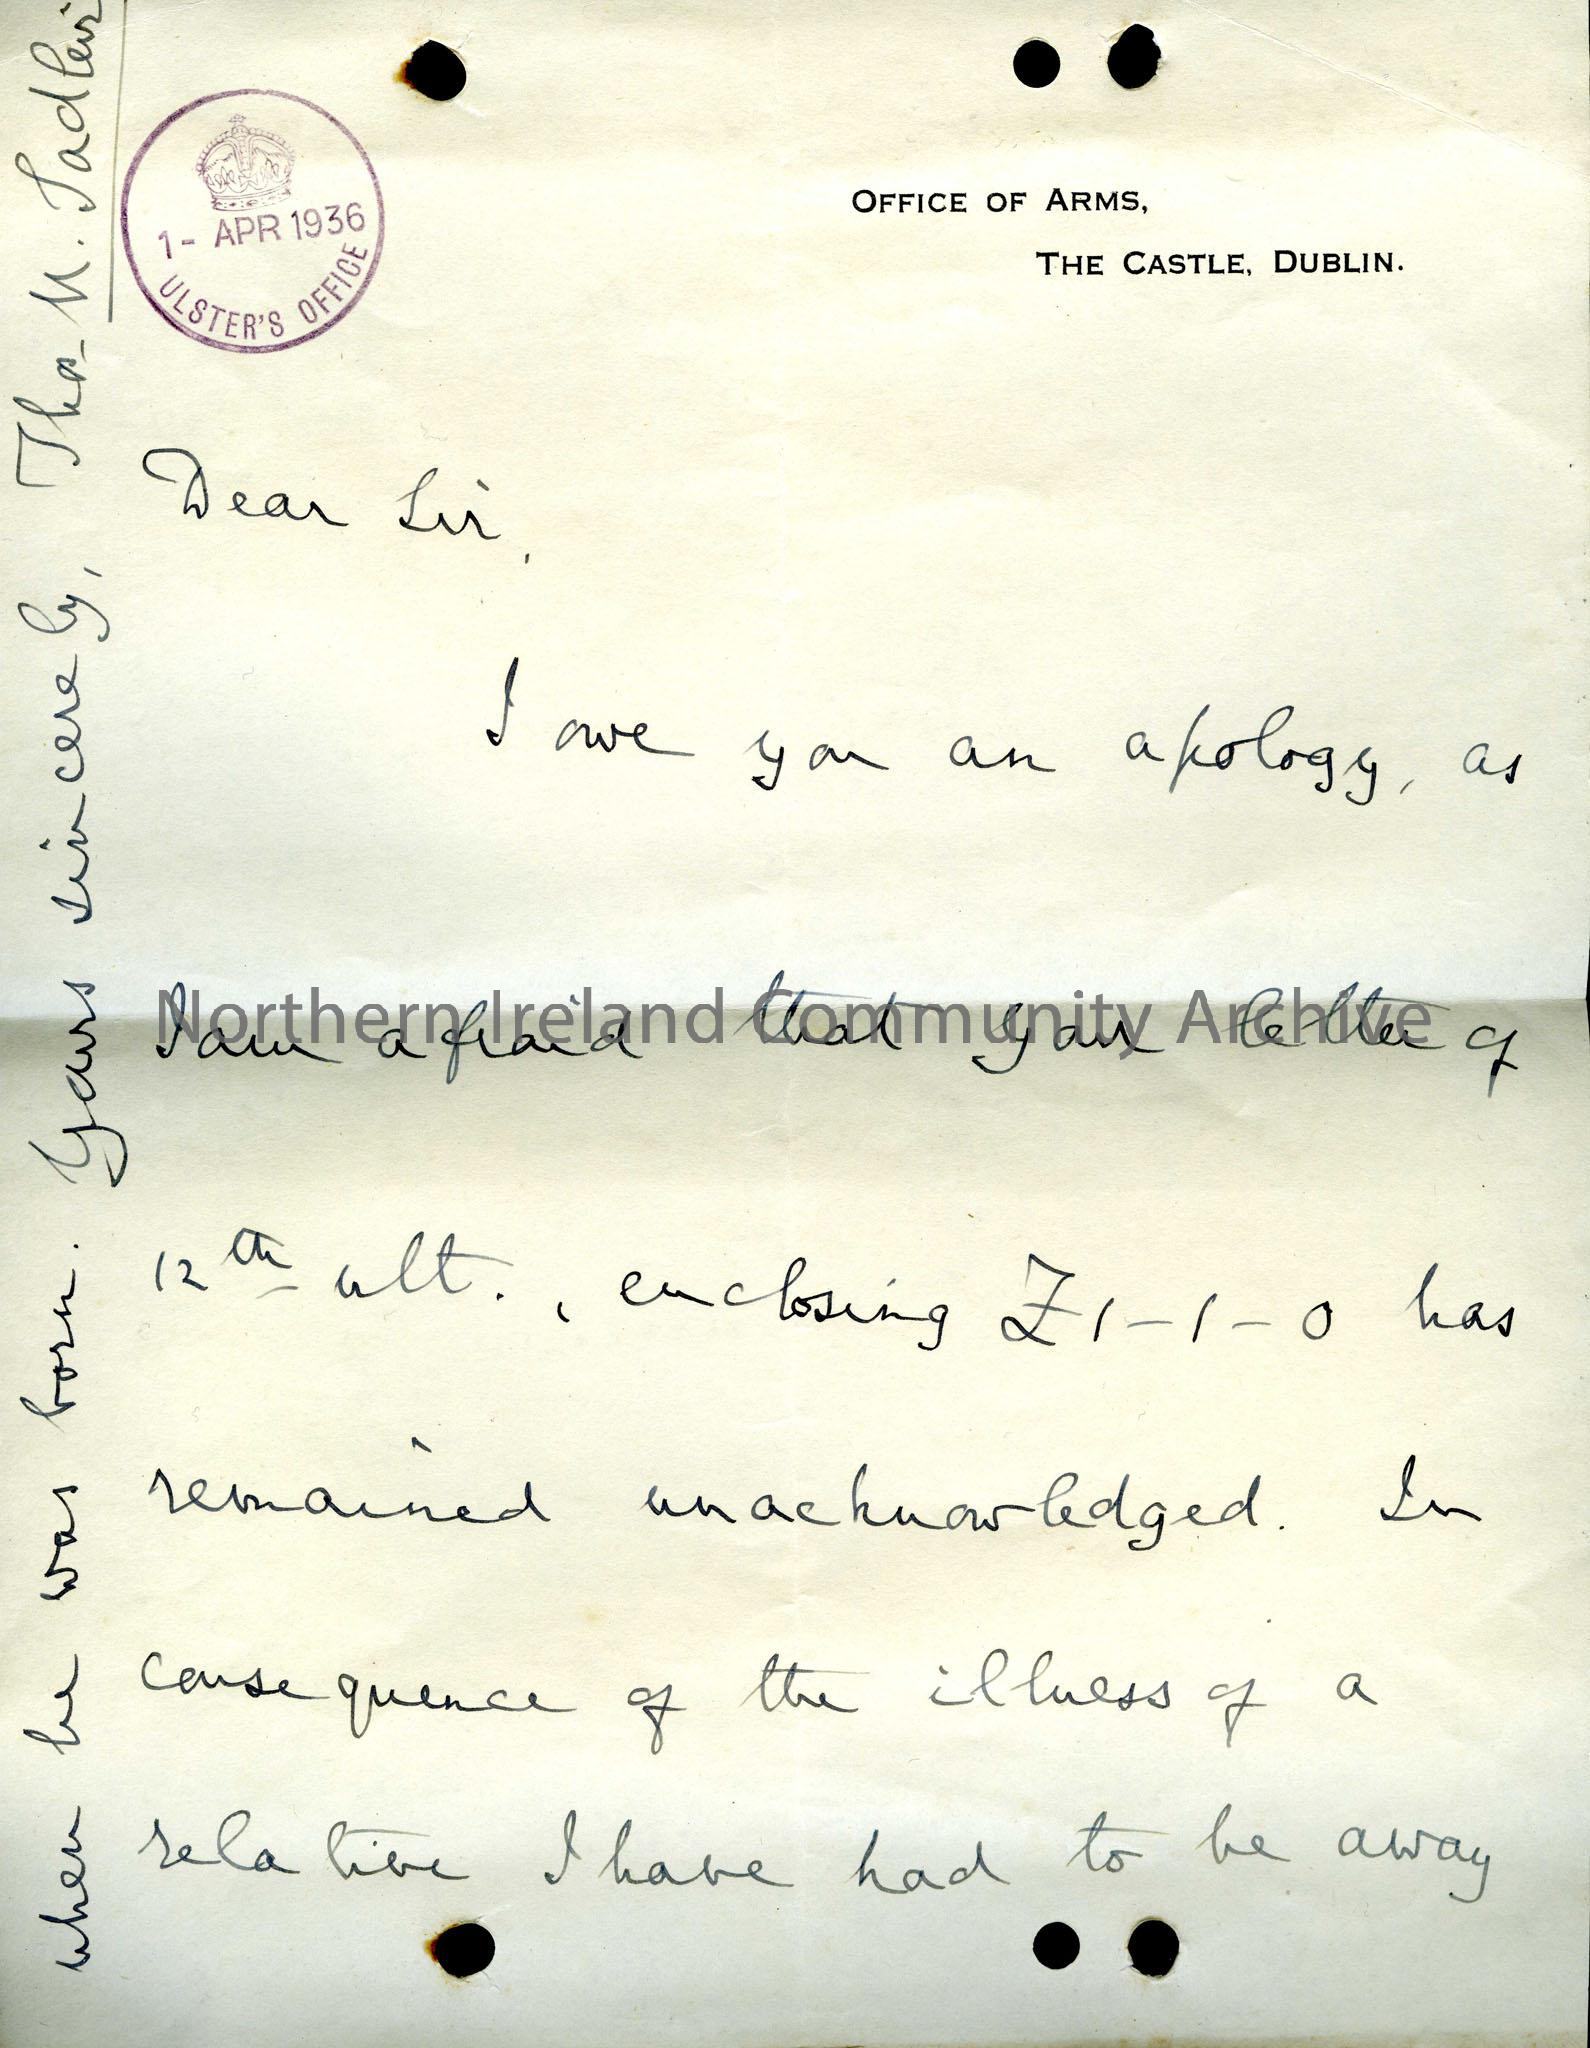 1- APR 1936
ULSTER'S OFFICE
OFFICE OF ARMS,
THE CASTLE, DUBLIN.
Dear Sir,
I owe you an apology, as
I am afraid that your letter of
12th ult., enclosing £1-1-0 has
remained unacknowledged. In
consequence of the illness of a
relative I have had to be away
when he was born. Yours sincerely, Thos. U. Sadleir
Northern Ireland Community Archive